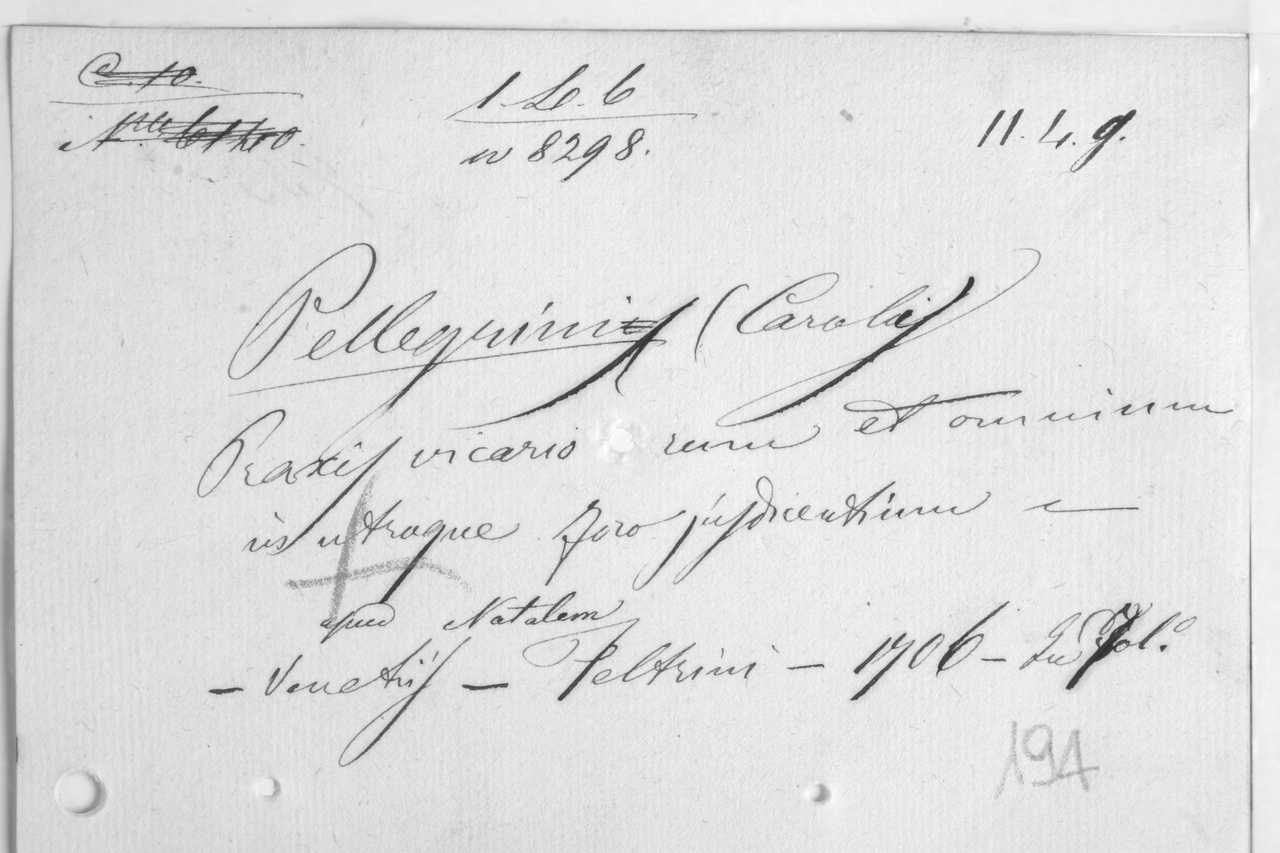 C. 10.
1. Lo. 6
11. 4. 9.
8298.
Pellegrinis (Carolis
Praxis vicariorum et omnium
in utroque foro jusdicentium
apud Natalem
– Venetiis – Feltrini – 1706 – In Fol.º
194